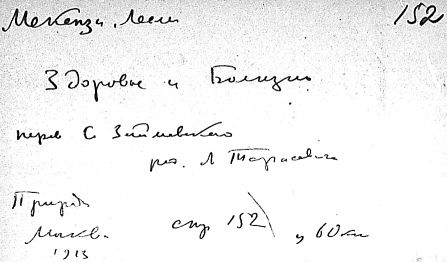 Мекензи, Лесли 152
Здоровье и Болезнь
перев С. Займовского
ред. Л Тарасевич
Природа
Москв.
1913
стр 152
ц 60 коп